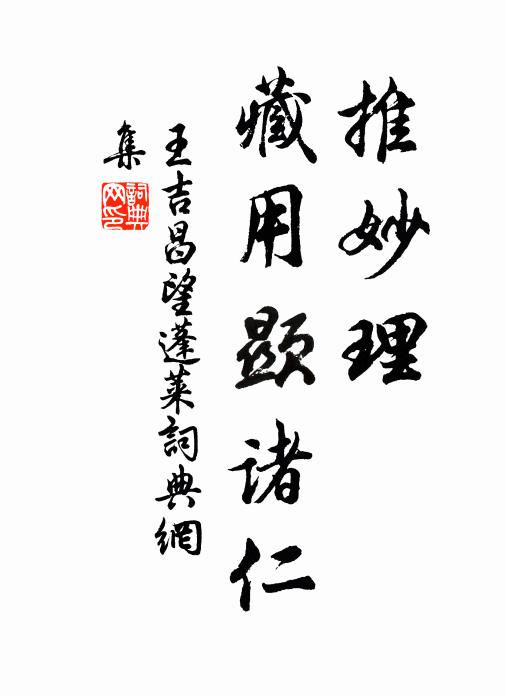 推妙理
藏用顯诸仁
王吉昌望蓬莱詞典網
集
詞典
网印